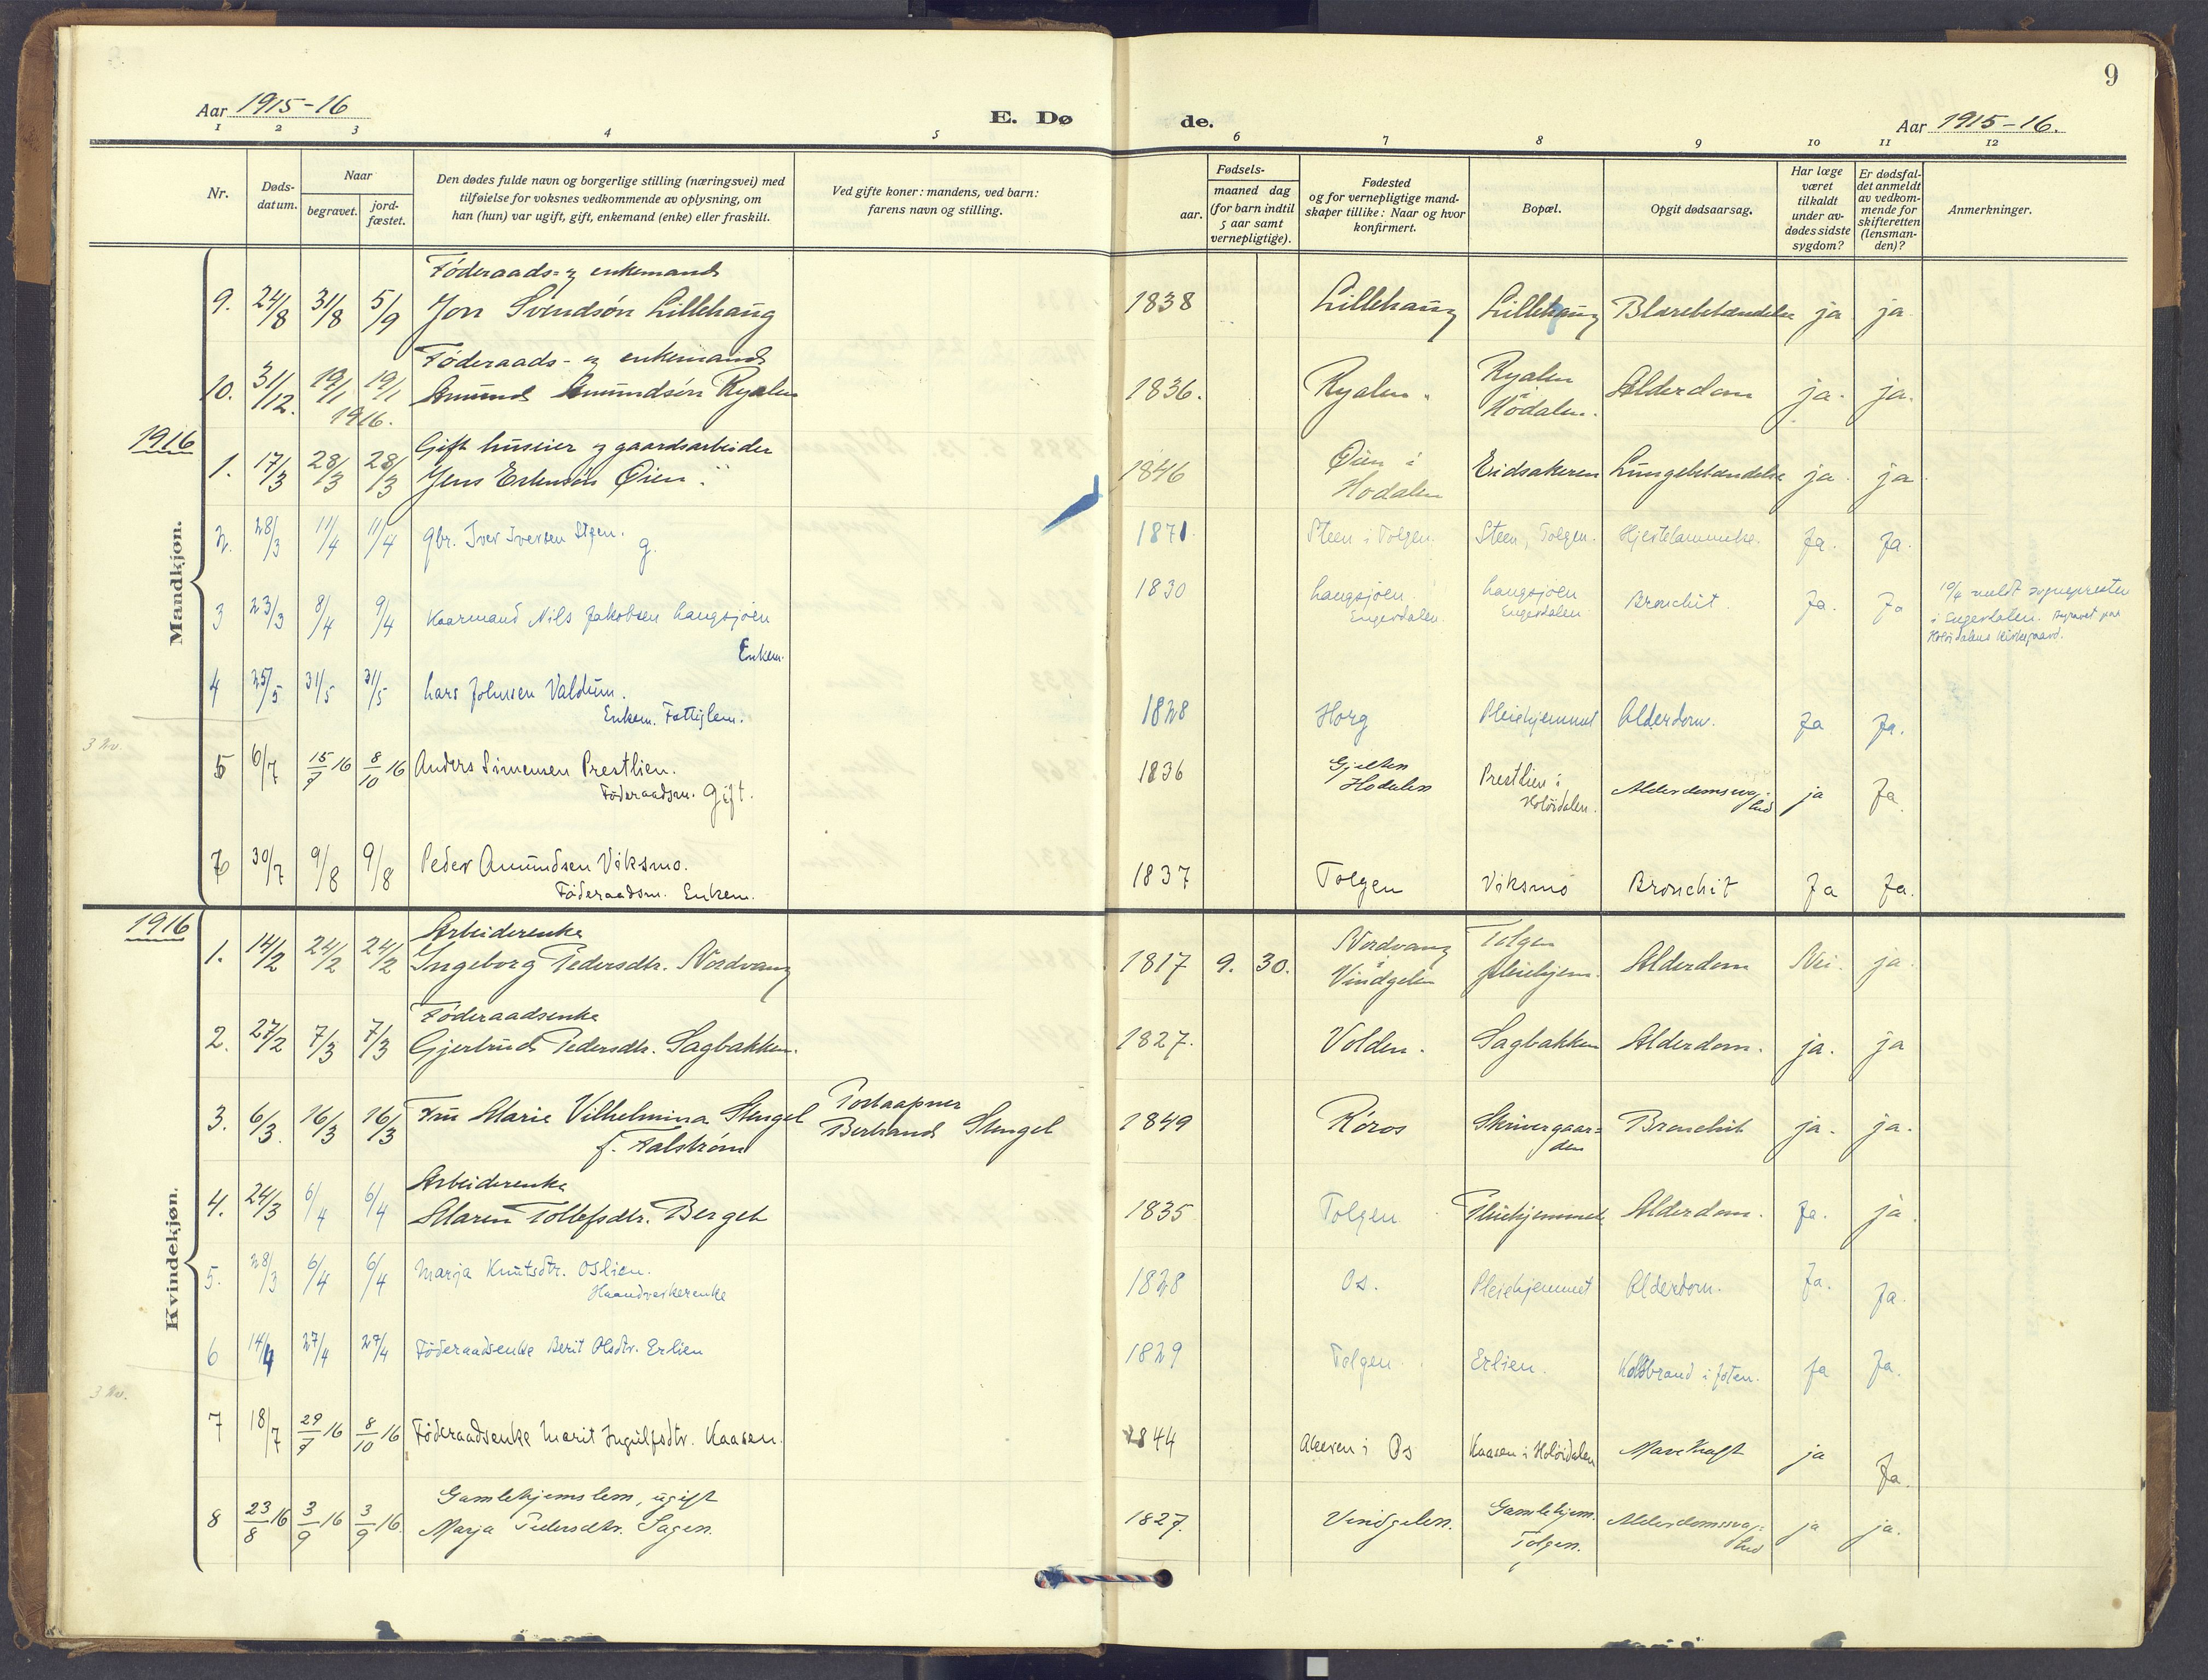 9
Aar 1915-16
E. Dø
de.
Aar 1915-16.
1 2 3 4 5 6 7 8 9 10 11 12
Nr.
Døds-
datum.
Naar
begravet.
jord-
fæstet.
Den dødes fulde navn og borgerlige stilling (næringsvei) med
tilføielse for voksnes vedkommende av oplysning, om
han (hun) var ugift, gift, enkemand (enke) eller fraskilt.
Ved gifte koner: mandens, ved barn:
farens navn og stilling.
Fødsels-
aar.
maaned dag
(for barn indtil
5 aar samt
vernepligtige).
Fødested
og for vernepligtige mand-
skaper tillike: Naar og hvor
konfirmert.
Bopæl.
Opgit dødsaarsag.
Har læge
været
tilkaldt
under av-
dødes sidste
sygdom?
Er dødsfal-
det anmeldt
av vedkom-
mende for
skifteretten
(lensman-
den)?
Anmerkninger.
Mandkjøn.
Føderaads- og enkemand
9. 24/8 31/8 5/9 Jon Svendsøn Lillehaug 1838 Lillehaug Lillehaug Blærebetændelse ja ja
Føderaads- og enkemand
10. 31/12. 19/1 19/1 Amund Amundsøn Ryalen 1836. Ryalen. Ryalen Hodalen. Alderdom ja. ja.
1916.
1916
Gift huseier og gaardsarbeider
1. 17/3 28/3 28/3 Jens Estensøn Øien. 1846 Øien i Hodalen Eidsakeren Lungebetændelse ja. ja.
2. 28/3 11/4 11/4 gbr. Iver Iversen Steen. g. 1871 Steen i Tolgen. Steen, Tolgen. Hjertelammelse. Ja. Ja.
3 23/3 8/4 9/4 Kaarmand Nils Jakobsen Langsjøen 1830 Langsjøen Engerdalen. Langsjøen Engerdalen Bronchit. Ja. Ja 10/4 meldt sogneprester
i Engerdalen. Begravet paa
Holøidalens kirkegaard.
Enkem.
4 25/5 31/5 31/5 Lars Johnsen Valdum. 1828 Horg Pleiehjemmet Alderdom. Ja Ja.
Enkem. Fattiglem.
3 Kv.
5 6/7 15/7 16 8/10 16 Anders Simensen Prestlien. 1836 Gjelten Hodalen Prestlien i Holøidalen. Alderdomssvag-
hed ja Ja
Føderaadsm. Gift.
6 30/7 9/8 9/8 Peder Amundsen Viksmo. 1837 Tolgen Viksmo Bronchit Ja Ja.
Føderaadsm. Enkem.
1916
Kvindekjøn.
Arbeiderenke
1. 14/2 24/2 24/2 Ingeborg Pedersdtr. Nordvang 1817 9. 30. Nordvang Vindgelen Tolgen pleiehjem. Alderdom Nei. ja.
Føderaadsenke
2. 27/2 7/3 7/3 Gjertrud Pedersdtr. Sagbakken. 1827. Volden. Sagbakken Alderdom. ja. ja
3. 6/3. 16/3 16/3 Fru Marie Vilhelmina Stengel f. Aalstrøm Postaapner
Bertrand Stengel 1849 Røros Skrivergaar-
den Bronchit ja. ja.
Arbeiderenke
4. 24/3 6/4 6/4 Maren Tollefsdtr. Berget 1835 Tolgen Pleiehjemmet Alderdom. Ja. ja.
5. 28/3 6/4 6/4 Marja Knutsdtr. Oslien. 1828 Os. Pleiehjemmet Alderdom. Ja. Ja.
Haandverkerenke
6 14/4 27/4 27/4 Føderaadsenke Berit Olsdtr. Erlien 1829 Tolgen. Erlien. Koldbrand i foten. Ja Ja.
3 Kv.
7 18/7 29/7 16 8/10 16 Føderaadsenke Marit Ingulfsdtr. Kaasen. 1844 i Os Kaasen i Holøidalen Mavekræft ja Ja.
Gamlehjemslem, ugift
8 23/8 16 3/9 16 3/9 16. Marja Pedersdtr. Sagen. 1827. Vindgelen. Gamlehjem. Tolgen. Alderdomssvag-
hed ja ja.